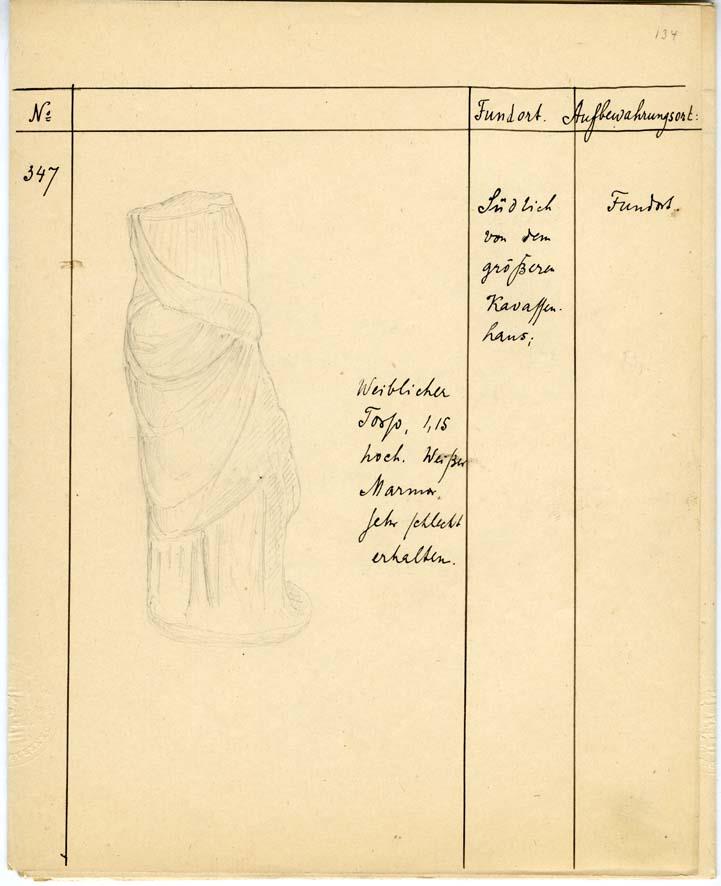 134
No Fundort. Aufbewahrungsort:
347
Südlich
von dem
größeren
Kavassen-
haus;
Fundort.
Weiblicher
Torso, 1,15
hoch. Weißer
Marmor.
Sehr schlecht
erhalten.